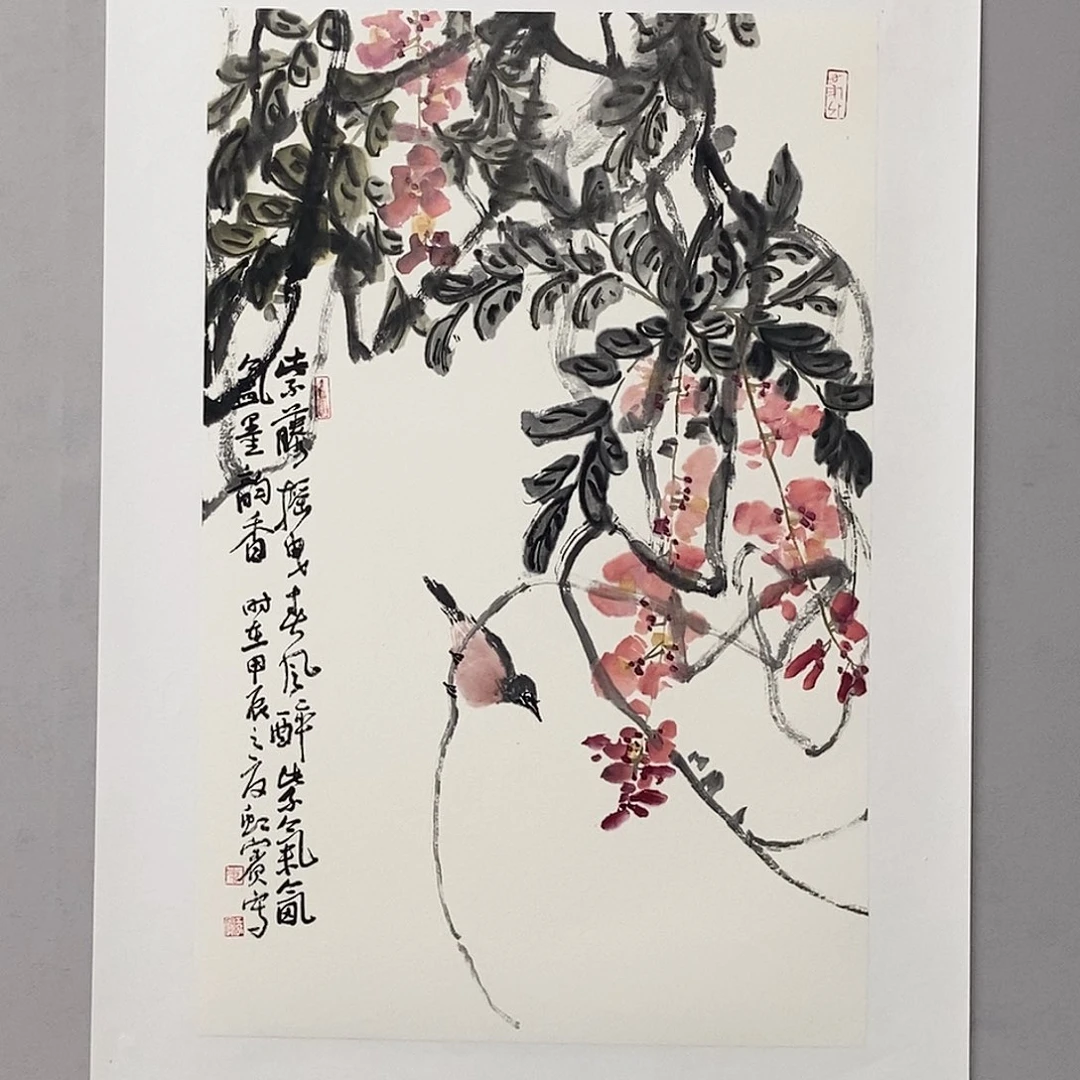 紫藤摇曳春风醉紫氣氤
氲墨韵香 时在甲辰之夏虹宾写